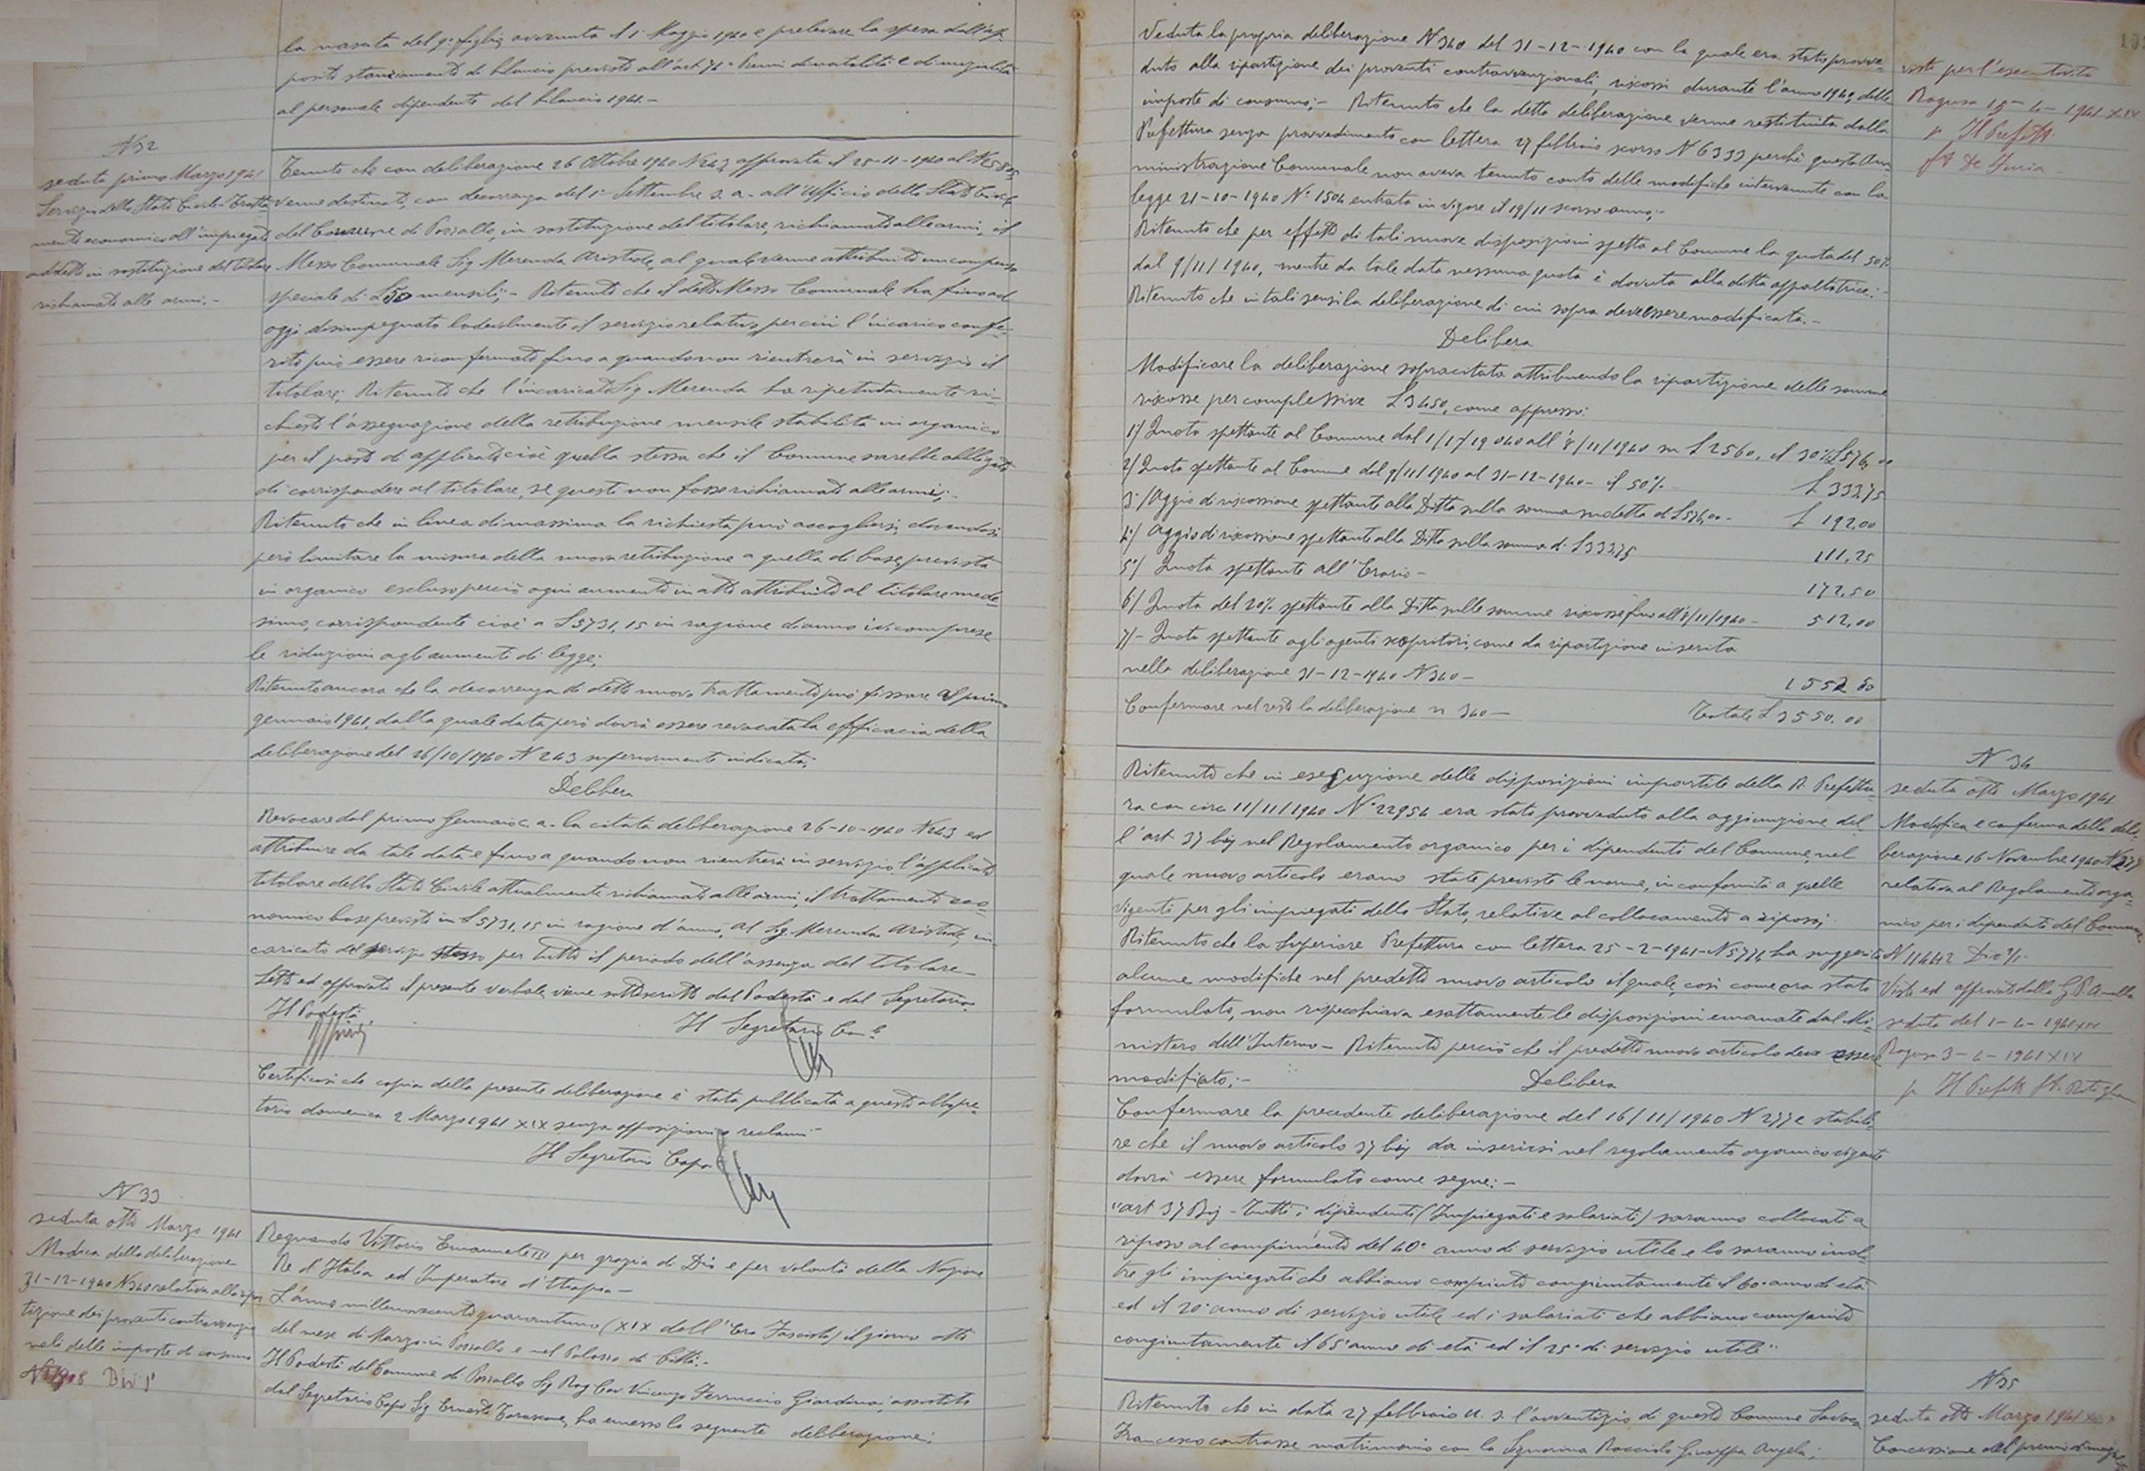 la nascita del 9° figlio avvenuta il 1° Maggio 1940 e prelevare la spesa dall'ap-
posito stanziamento di bilancio previsto all'art. 71 Premi di natalità e di nuzialità
al personale dipendente del bilancio 1941.-
N 32
seduta primo Marzo 1941
Servizio dello Stato Civile - Tratta-
mento economico all'impiegato
addetto in sostituzione del titolare
richiamato alle armi.-
Tenuto che con deliberazione 26 Ottobre 1940 N 243 approvata il 25-11-1940 al N
venne destinato, con decorrenza del 1° Settembre s. a. all'Ufficio dello Stato Civile
del Comune di Pozzallo, in sostituzione del titolare, richiamato alle armi, il
Messo Comunale Sig. Merenda Aristide, al quale venne attribuito un compenso
speciale di £ 50 mensili;- Ritenuto che il detto Messo Comunale ha fino ad
oggi disimpegnato lodevolmente il servizio relativo, per cui l'incarico confe-
rito può essere riconfermato fino a quando non rientrerà in servizio il
titolare; Ritenuto che l'incaricato Sig. Merenda ha ripetutamente ri-
chiesto l'assegnazione della retribuzione mensile stabilita in organico
per il posto di applicato cioè quella stessa che il Comune sarebbe obbligato
di corrispondere al titolare, se questi non fosse richiamato alle armi;-
Ritenuto che in linea di massima la richiesta può accogliersi, dovendosi
però limitare la misura della nuova retribuzione a quella di base, prevista
in organico escluso perciò ogni aumento in atto attribuito al titolare mede-
simo, corrispondente cioè a £ 5731,15 in ragione d'anno ivi comprese
le riduzioni agli aumenti di legge;
Ritenuto ancora che la decorrenza di detto nuovo trattamento può fissare al primo
gennaio 1941, dalla quale data però dovrà essere revocata la efficacia della
deliberazione del 26/10/1940 N 243 superiormente indicata;
Delibera
Revocare dal primo Gennaio c. a. la citata deliberazione 26-10-1940 N 243 ed
attribuire da tale data e fino a quando non rientrerà in servizio l'applicato
titolare dello Stato Civile attualmente richiamato alle armi, il trattamento eco-
nomico base previsto in £ 5731,15 in ragione d'anno, al Sig. Merenda Aristide, in-
caricato del servizio stesso per tutto il periodo dell'assenza del titolare-
Letto ed approvato il presente verbale, viene sottoscritto dal Podestà e dal Segretario.
Il Podestà
Il Segretario Com.le
Certificasi che copia della presente deliberazione è stata pubblicata a questo albo pre-
torio domenica 2 Marzo 1941 XIX senza opposizioni e reclami-
Il Segretario Capo
N 33
seduta otto Marzo 1941
Modica della deliberazione
31-12-1940 N 340 relativa alla ripar
tizione dei proventi contravvenzio
nali delle imposte di consumo
Div 1ª
Regnando Vittorio Emanuele III per grazia di Dio e per volontà della Nazione
Re d'Italia ed Imperatore d'Etiopia-
L'anno millenovecentoquarantuno (XIX dell'Era Fascista) il giorno otto
del mese di Marzo in Pozzallo e nel Palazzo di Città.-
Il Podestà del Comune di Pozzallo Sig Rag. Cav Vincenzo Ferruccio Giardina, assistito
dal Segretario Capo Sig Ernesto Tarascone, ha emesso la seguente deliberazione;
Veduta la propria deliberazione N 340 del 31-12-1940 con la quale era stato provve-
duto alla ripartizione dei proventi contravvenzionali, riscossi durante l'anno 1940, delle
imposte di consumo;- Ritenuto che la detta deliberazione venne restituita dalla
Prefettura senza provvedimento con lettera 27 febbraio scorso N 6333 perché questa Am-
ministrazione Comunale non aveva tenuto conto delle modifiche intervenute con la
legge 21-10-1940 N° 1504 entrata in vigore il 19/11 scorso anno;-
Ritenuto che per effetto di tali nuove disposizioni spetta al Comune la quota del 50%
dal 9/11/1940, mentre da tale data nessuna quota è dovuta alla ditta appaltatrice;-
Ritenuto che in tali sensi la deliberazione di cui sopra deve essere modificata.-
Delibera
Modificare la deliberazione sopracitata attribuendo la ripartizione delle somme
riscosse per complessive £ 3450, come appresso:
1°/ Quota spettante al Comune dal 1/1/1940 all'8/11/1940 su £ 2560, il 30% £ 576,00
2/ Quota spettante al Comune dal 9/11/1940 al 31-12-1940 - il 50% - £ 333,75
3°/ Aggio di riscossione spettante alla Ditta sulla somma sudetta di £ 576,00 - £ 192.00
4°/ Aggio di riscossione spettante alla Ditta sulla somma di £ 333,75 111,25
5°/ Quota spettante all'Erario - 172,50
6/ Quota del 20% spettante alla Ditta sulle somme riscosse fino all'8/11/1940 - 512,00
7/- Quota spettante agli agenti scopritori, come da ripartizione inserita
nella deliberazione 31-12-1940 N 340 - 1552 50
Confermare nel resto la deliberazione n 340 - Totale £ 3550,00
visto per l'esecutorietà
Ragusa 15-4-1941 XIX
p Il Prefetto
N 34
seduta otto Marzo 1941
Modifica e conferma della deli-
berazione 16 Novembre 1940 N 277
relativa al Regolamento orga-
nico per i dipendenti del Comune
N 11442 Div 2ª/.
Visto ed approvato dalla G.P.A. nella
seduta del 1-4-1941 XIX
Ragusa 3-4-1941 XIX
p Il Prefetto
Ritenuto che in esecuzione delle disposizioni impartite della R. Prefettu-
ra con circ. 11/11/1940 N° 22954 era stato provveduto alla aggiunzione del-
l'art 37 bis nel Regolamento organico per i dipendenti del Comune, nel
quale nuovo articolo erano state previste le norme, in conformità a quelle
vigenti per gli impiegati dello Stato, relative al collocamento a riposo;
Ritenuto che la Superiore Prefettura con lettera 25-2-1941 - N 5776 ha suggerito
alcune modifiche nel predetto nuovo articolo il quale, così come era stato
formulato, non rispecchiava esattamente le disposizioni emanate dal Mi-
nistero dell'Interno - Ritenuto perciò che il predetto nuovo articolo deve essere
modificato;- Delibera
Confermare la precedente deliberazione del 16/11/1940 N 277 e stabili-
re che il nuovo articolo 37 bis da inserirsi nel regolamento organico vigente
dovrà essere formulato come segue:-
"art 37 Bis - Tutti i dipendenti (Impiegati e salariati) saranno collocati a
riposo al compimento del 40° anno di servizio utile e lo saranno inol-
tre gli impiegati che abbiano compiuto congiuntamente il 60° anno di età
ed il 20° anno di servizio utile ed i salariati che abbiano compiuto
congiuntamente il 65° anno di età ed il 25° di servizio utile"
N 35
seduta otto Marzo 1941
Concessione del premio di
Ritenuto che in data 27 febbraio u. s. l'avventizio di questo Comune
Francesco contrasse matrimonio con la Signorina Giuseppa Angela;